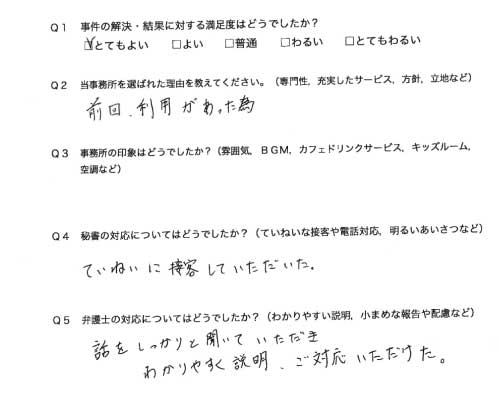 Q1 事件の解決・結果に対する満足度はどうでしたか？
☑とてもよい □よい □普通 □わるい □とてもわるい
Q2 当事務所を選ばれた理由を教えてください。（専門性，充実したサービス，方針，立地など）
前回、利用があった為
Q3 事務所の印象はどうでしたか？（雰囲気，BGM，カフェドリンクサービス，キッズルーム，
空調など）
Q4 秘書の対応についてはどうでしたか？（ていねいな接客や電話対応，明るいあいさつなど）
ていねいに接客していただいた。
Q5 弁護士の対応についてはどうでしたか？（わかりやすい説明，小まめな報告や配慮など）
話をしっかりと聞いていただき
わかりやすく説明、ご対応いただけた。